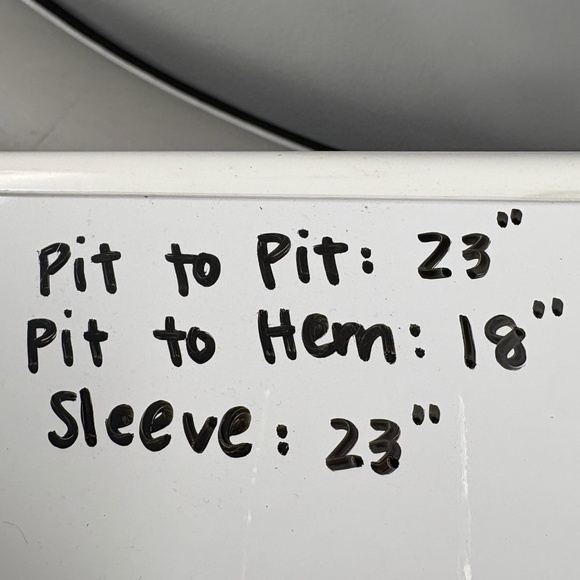 Pit to Pit: 23"
Pit to Hem: 18"
Sleeve: 23"